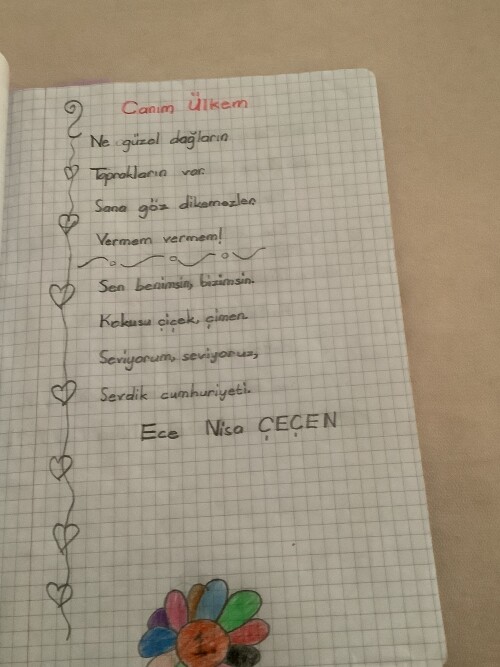 Canım Ülkem
Ne güzel dağların
Toprakların var.
Sana göz dikemezler
Vermem vermem!
Sen benimsin, bizimsin.
Kokusu çiçek, çimen.
Seviyorum, seviyoruz,
Sevdik cumhuriyeti.
Ece Nisa ÇEÇEN
1